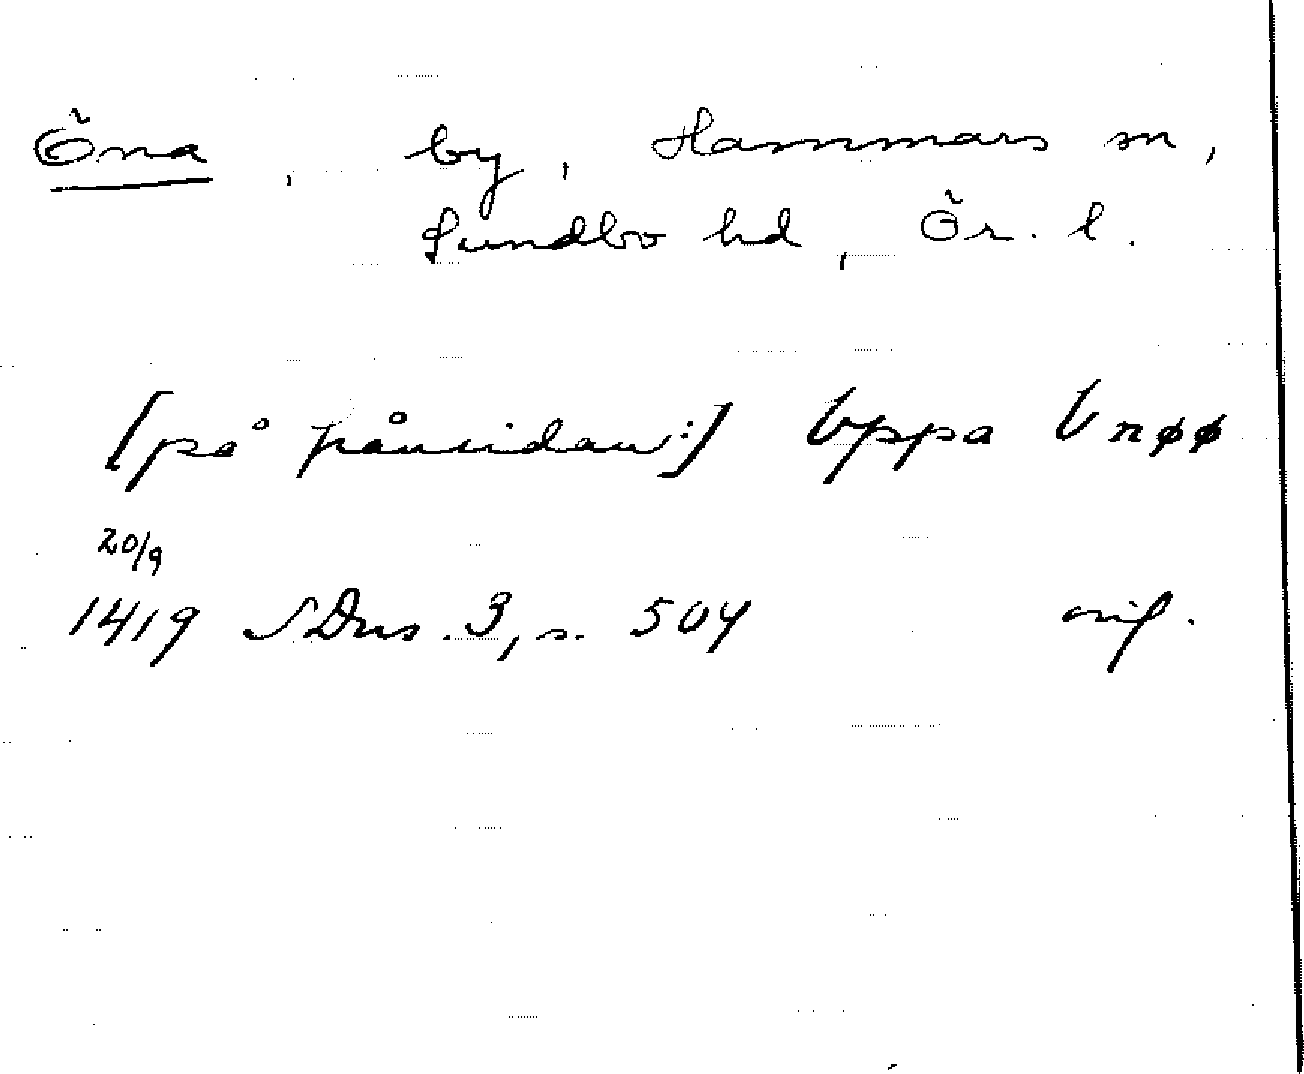 Öna, by, Hammars sn,
Sundbo hd, Ör. l.
[på frånsidan:] Vppa Vnøø
20/9
1419 SDns. 3, s. 504 orig.